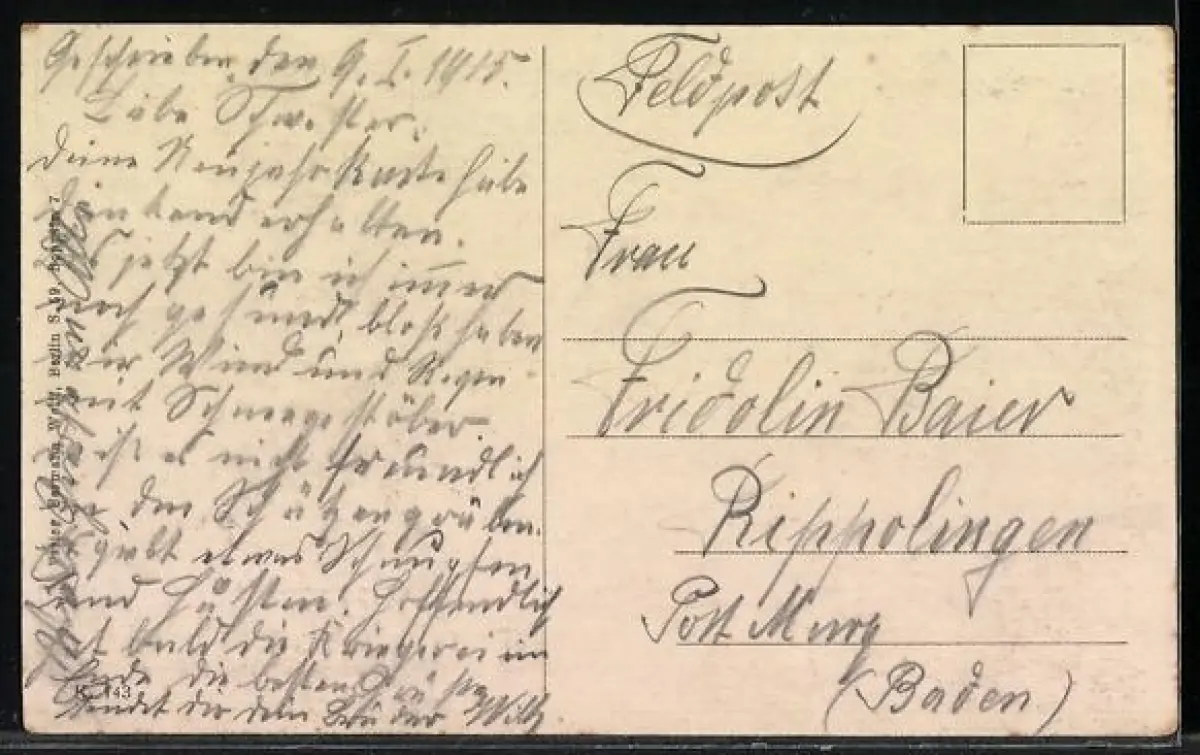 Geschrieben, den 9. I. 1915.
Liebe Schwester.
Deine Neujahrskarte habe
dankend erhalten.
Bis jetzt bin ich immer
noch gesund, bloß haben
wir Wind und Regen
mit Schneegestöber
ist es nicht freundlich
in den Schützengräben.
gibt etwas Schnupfen
und Husten. Hoffendlich
hat bald die Kriegerei ein
Ende die besten Grüße
sendet dir dein Bruder Willy
Feldpost
Frau
Fridolin Baier
Rippolingen
Post Murg
(Baden)
Hermann Wolff, Berlin S. 59,
K. 143